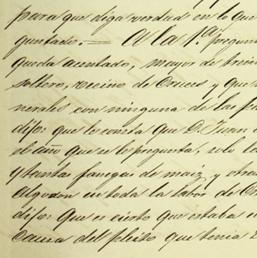 para que diga verdad en lo que
guntado. — A la 1ª pregunta
queda acentado, mayor de trein
soltero, vecino de Cruces y que
nerales con ninguna de las pa
dijo: que le consta que D. Juan
el año que se le pregunta, solo
y tantas fanegas de maiz, y otras
algodon en toda la labor de
dijo: Que es cierto que estaba
causa del pleito que tenia